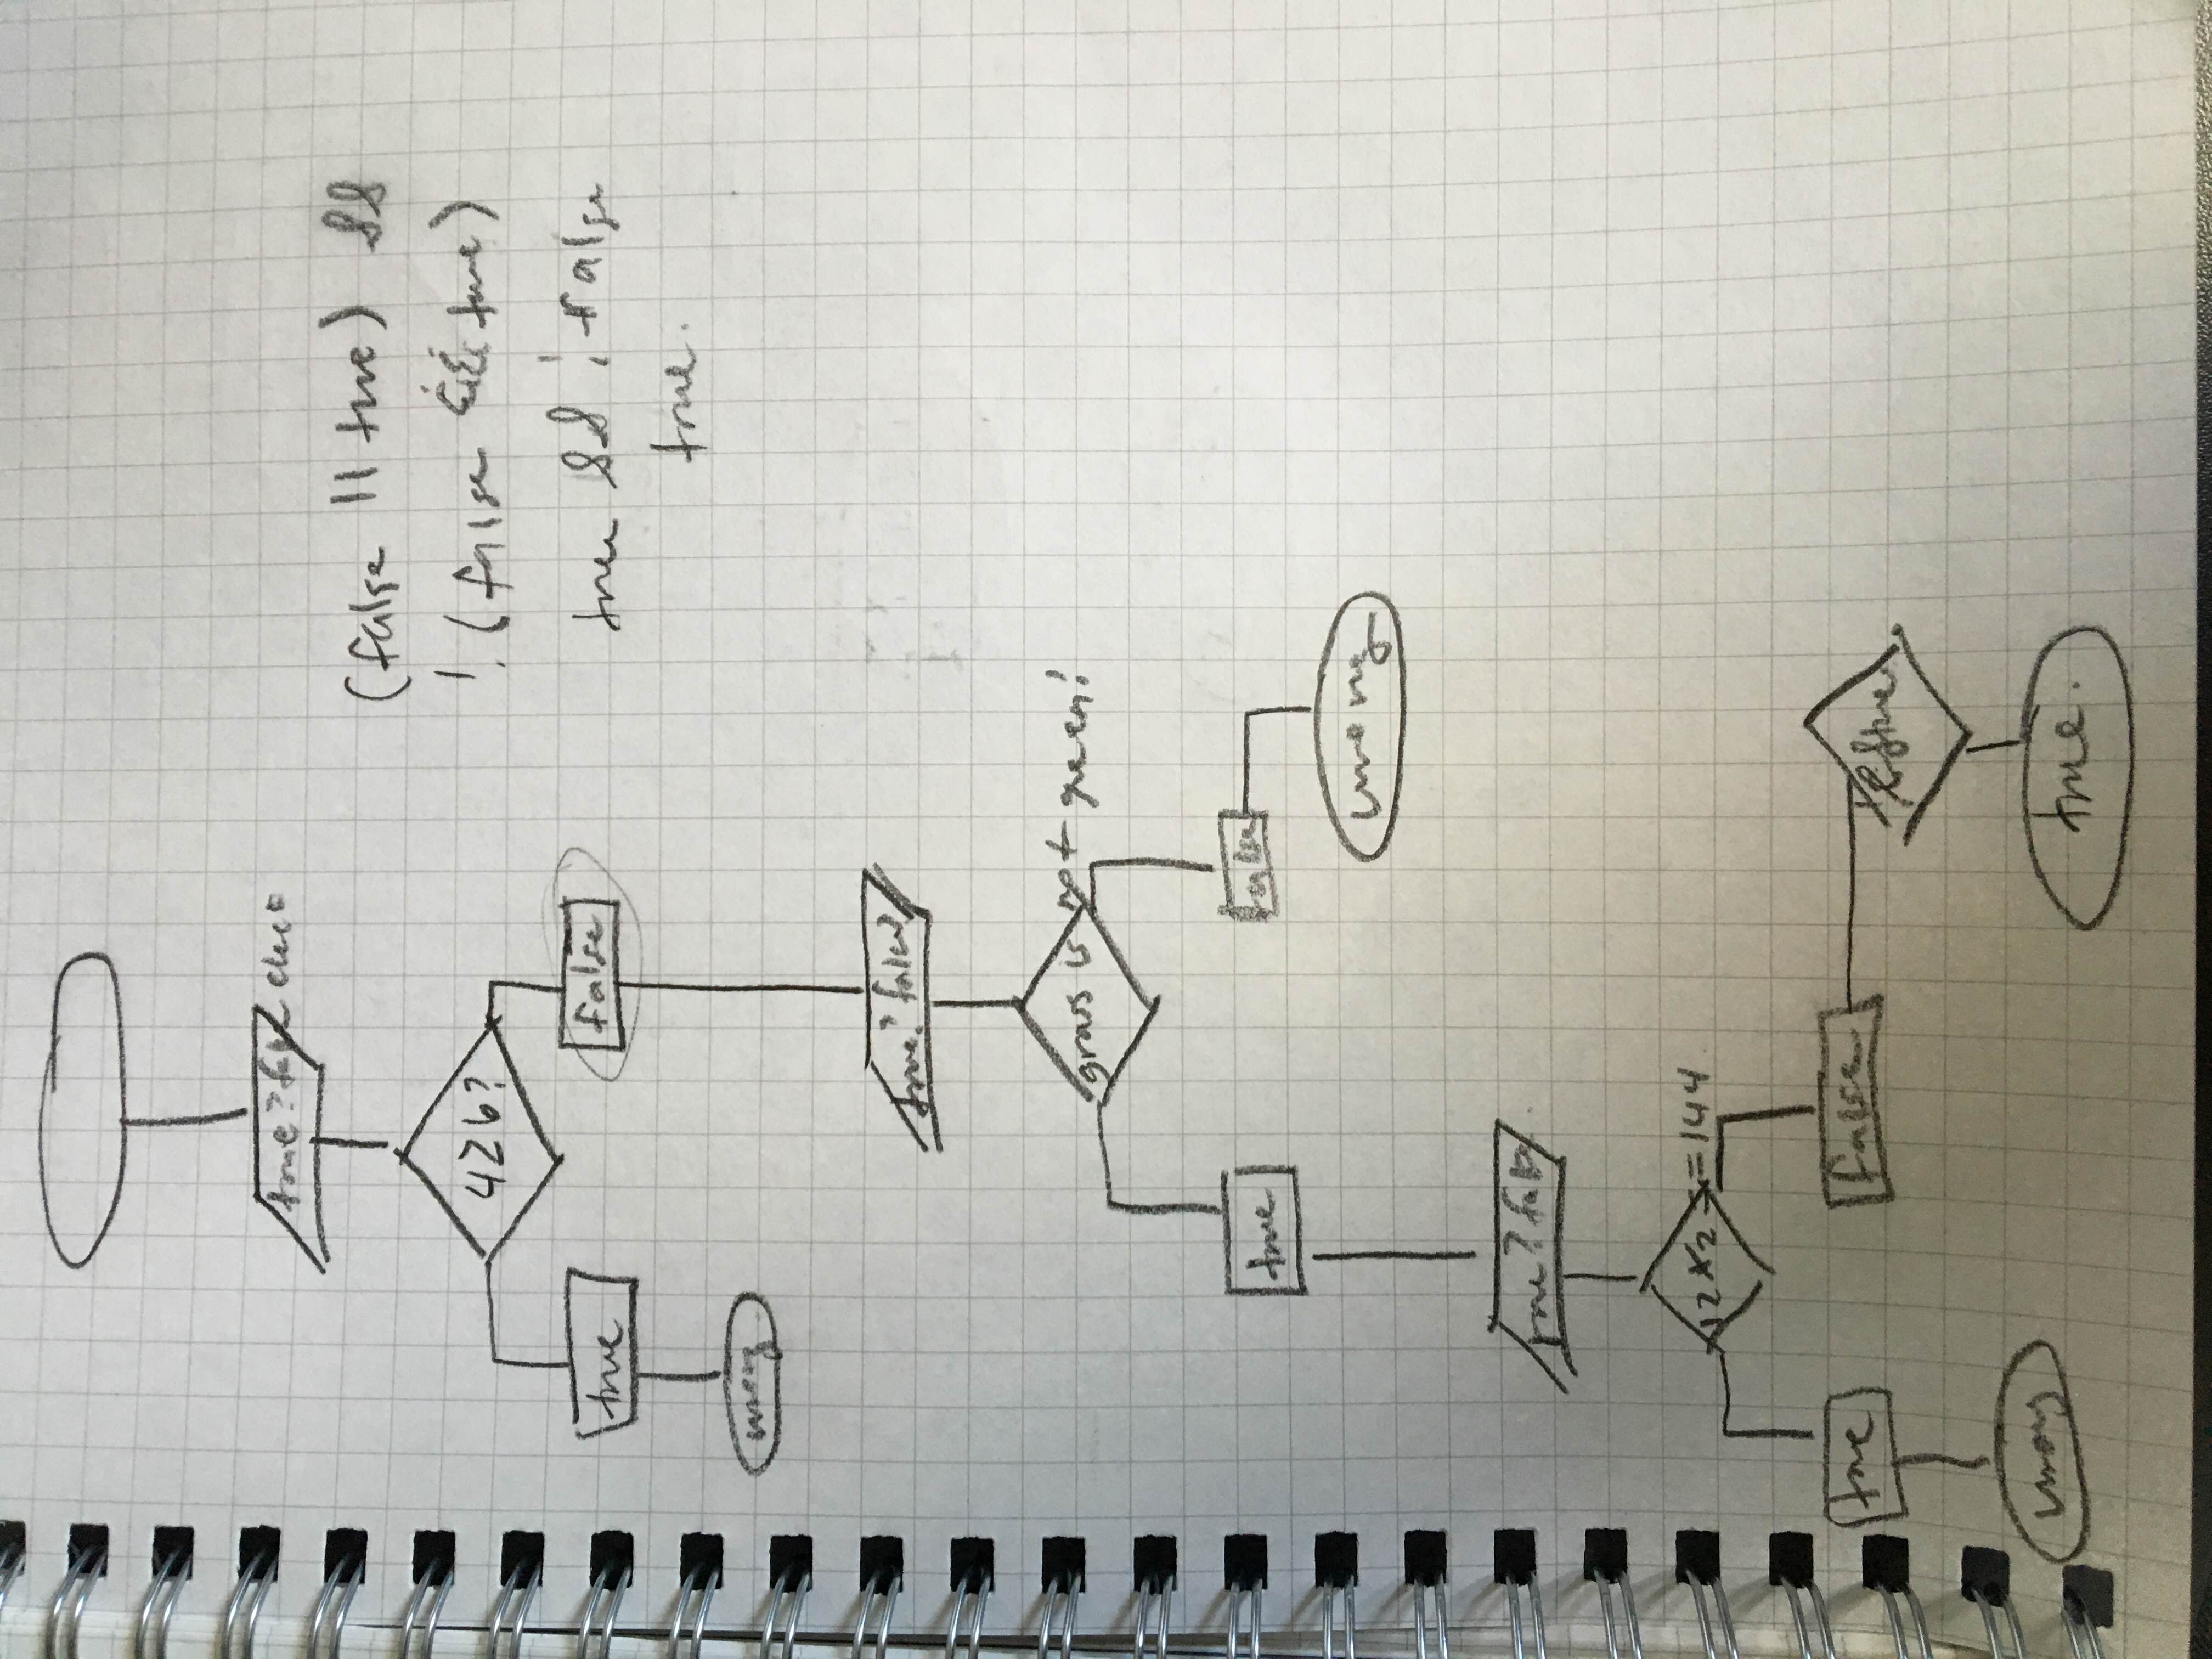 true? false
4≥6?
true
false
wrong
true? false?
grass is not green?
true
false
wrong
true? false
12 x 2 == 144
true
false
wrong
true.
(false || true) &&
! (false && true)
true && ! false
true.